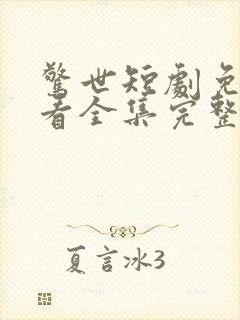 驚世短劇免
看全集完整
夏言冰3